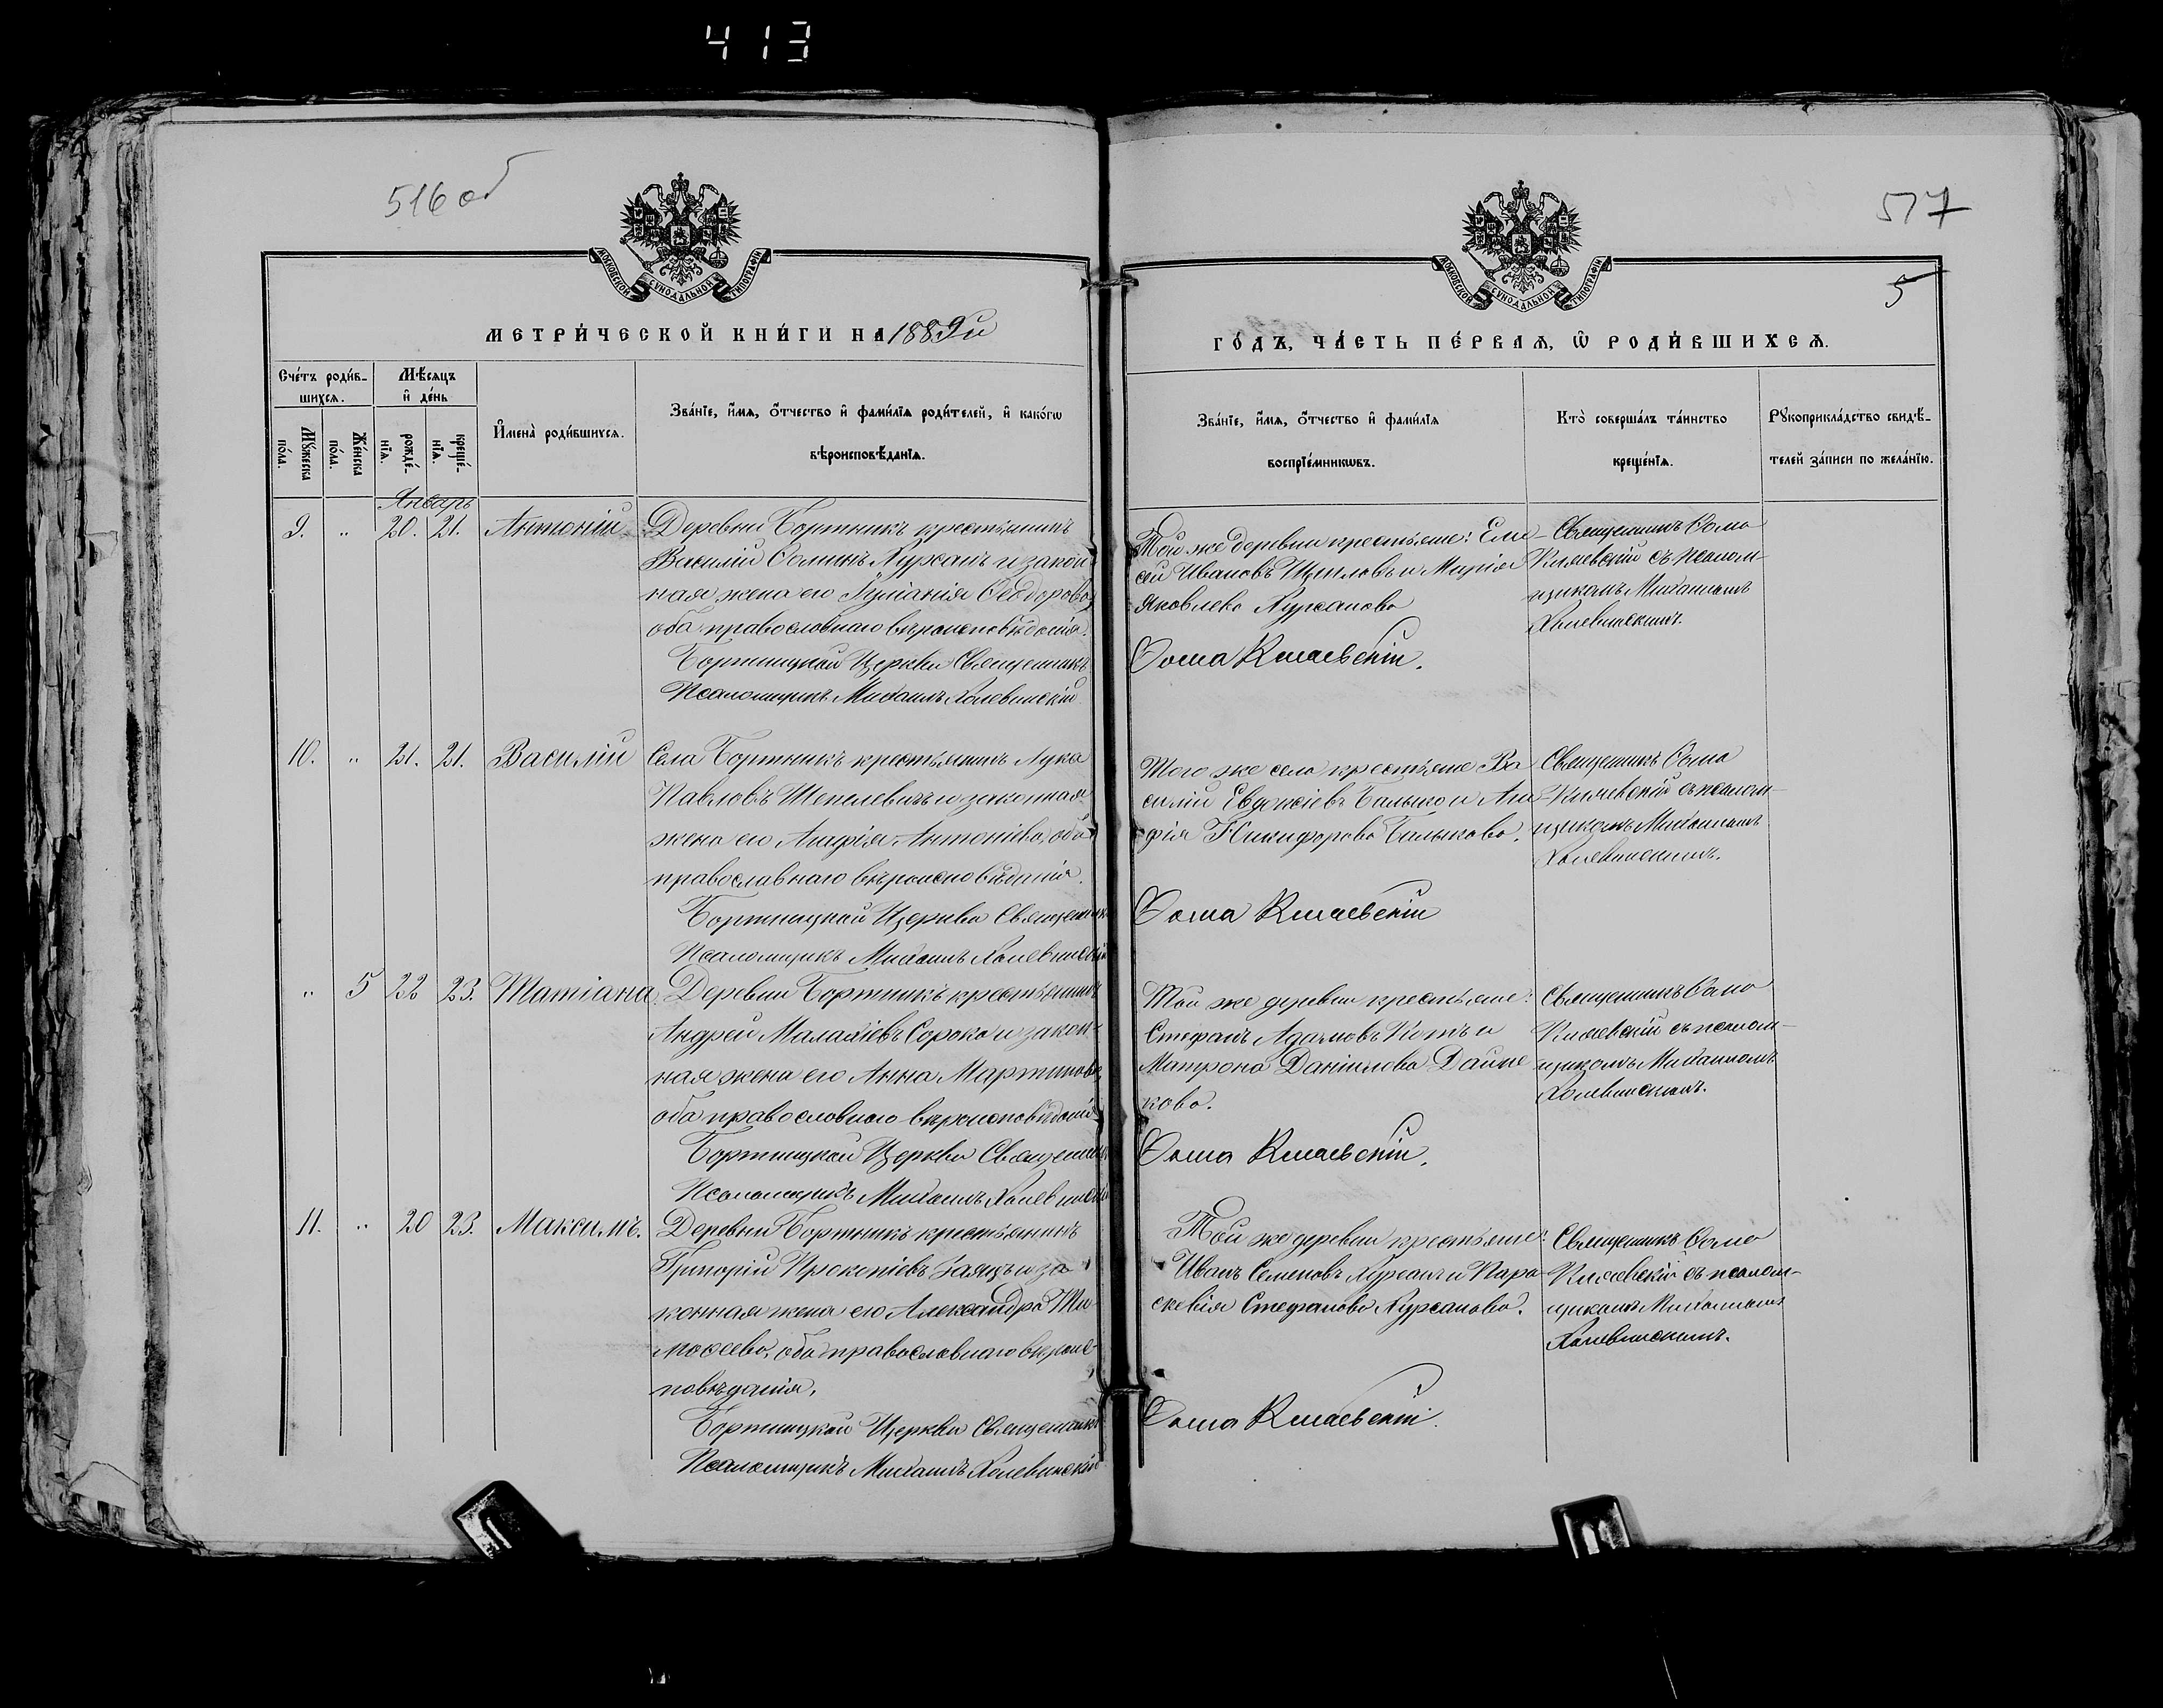 413
516 об
517
5
МОСКОВСКОЙ СУНОДАЛЬНОЙ ТИПОГРАФІИ
МОСКОВСКОЙ СУНОДАЛЬНОЙ ТИПОГРАФІИ
МЕТРИ́ЧЕСКОЙ КНИ́ГИ НА 1889й
ГО́ДЪ, ЧА́СТЬ ПЕ́РВАѦ, Ѡ РОДИ́ВШИХСѦ.
Сче́тъ роди́в-
шихсѧ.
Мꙋ́жеска по́ла.
Же́нска по́ла.
Мѣ́сѧцъ
и҆ де́нь
рожде́-
нїѧ.
креще́-
нїѧ.
И҆мена̀ роди́вшихсѧ.
Зва́нїе, и҆́мѧ, ѻ҆́тчество и҆ фами́лїѧ роди́телей, и҆ како́гѡ
вѣроисповѣ́данїѧ.
Зва́нїе, и҆́мѧ, ѻ҆́тчество и҆ фами́лїѧ
воспрїе́мникѡвъ.
Кто̀ соверша́лъ та́инство
креще́нїѧ.
Рꙋкоприкла́дство свидѣ́-
телей за́писи по жела́нїю.
Январь
9. " 20. 21. Антоній
Деревни Бортникъ крестьянинъ
Василій Ѳоминъ Хурсанъ и закон
ная жена его Ѳеодорова,
оба православнаго вѣроисповѣданія.
Бортницкой Церкви Священникъ
Псаломщикъ Михаилъ Холевинскій
Той же деревни крестьяне: Ели
сей Ивановъ и Марія
Яковлева Хурсанова
Ѳома Кмаевскій.
Священникъ Ѳома
Кмаевскій съ псалом-
щикомъ Михаиломъ
Холевинскимъ.
10. " 21. 21. Василій
Села Бортникъ крестьянинъ Лука
Павловъ Шепелевичъ и законная
жена его Агафія Антоніева, оба
православнаго вѣроисповѣданія.
Бортницкой Церкви Священникъ
Псаломщикъ Михаилъ Холевинскій
Того же села крестьяне Ва
силій Евдокіевъ и Ага
фія Никифорова
Ѳома Кмаевскій
Священникъ Ѳома
Кмаевскій съ псалом-
щикомъ Михаиломъ
Холевинскимъ.
" 5 22 23. Татіана
Деревни Бортникъ крестьянинъ
Андрей Малахіевъ Сорока и закон-
ная жена его Анна Мартинова,
оба православнаго вѣроисповѣданія
Бортницкой Церкви Священникъ
Псаломщикъ Михаилъ Холевинскій
Той же деревни крестьяне:
Стефанъ Адамовъ Котъ и
Матрона Даніилова Дайне
кова.
Ѳома Кмаевскій.
Священникъ Ѳома
Кмаевскій съ псалом-
щикомъ Михаиломъ
Холевинскимъ.
11. " 20 23. Максимъ.
Деревни Бортникъ крестьянинъ
Григорій Прокопіевъ Заяцъ и за
конная жена его Александра Ти
моѳеева, оба православнаго вѣроис
повѣданія,
Бортницкой Церкви Священникъ
Псаломщикъ Михаилъ Холевинскій
Той же деревни крестьяне:
Иванъ Семеновъ Хурсанъ и Пара
скевія Стефанова Хурсанова.
Ѳома Кмаевскій.
Священникъ Ѳома
Кмаевскій съ псалом-
щикомъ Михаиломъ
Холевинскимъ.